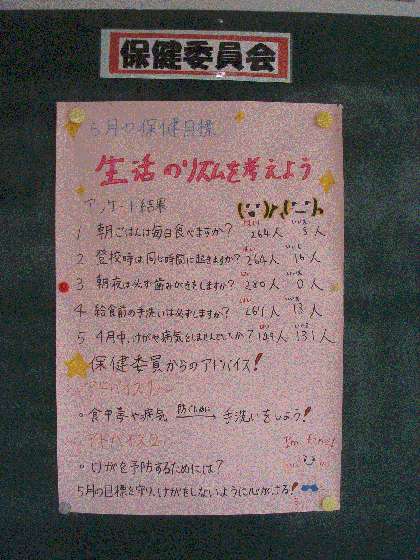 保健委員会
5月の保健目標
生活のリズムを考えよう
アンケート結果
1 朝ごはんは毎日食べますか? はい 264人 いいえ 5人
2 登校時は同じ時間に起きますか? はい 264人 いいえ 16人
3 朝夜は必ず歯みがきをしますか? はい 280人 いいえ 0人
4 給食前の手洗いは必ずしますか? はい 267人 いいえ 13人
5 4月中、けがや病気をしませんでしたか? はい 149人 いいえ 131人
保健委員からのアドバイス!
アドバイス1
・食中毒や病気 防ぐために → 手洗いをしよう!
アドバイス2
I'm fine!
・けがを予防するためには?
5月の目標を守り、けがをしないように心がける!